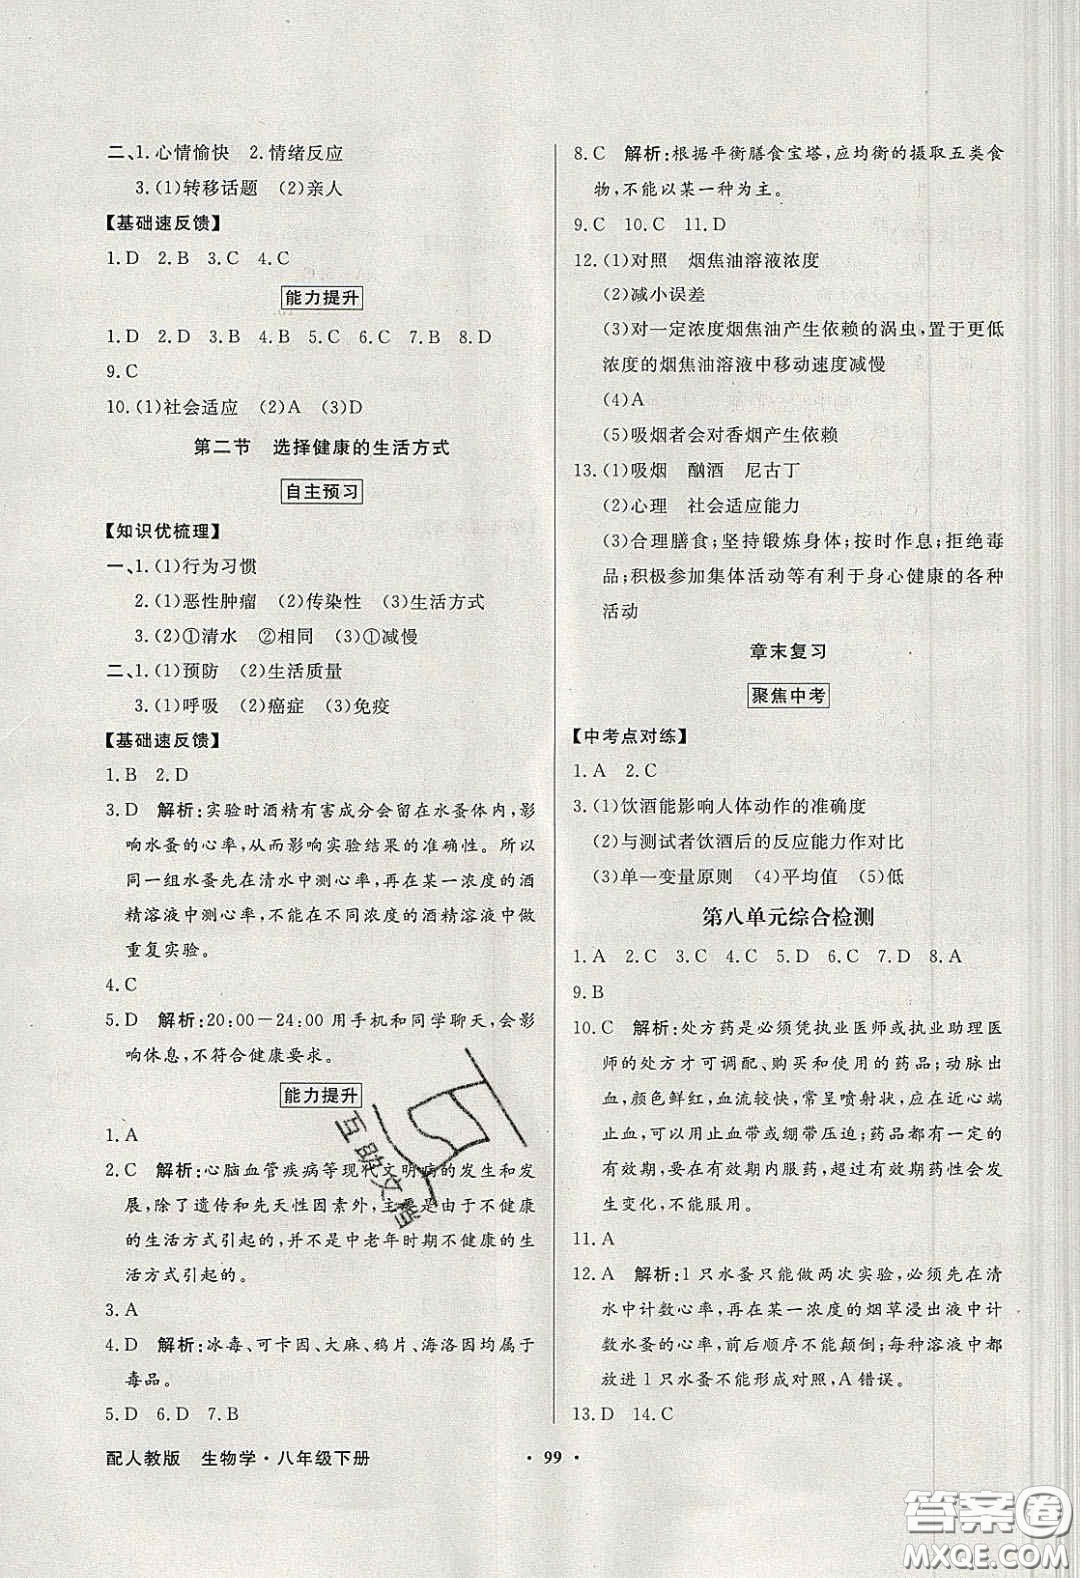 二、1.心情愉快 2.情绪反应
3.(1)转移话题 (2)亲人
【基础速反馈】
1.D 2.B 3.C 4.C
能力提升
1.D 2.D 3.B 4.B 5.C 6.C 7.B 8.D
9.C
10.(1)社会适应 (2)A (3)D
第二节 选择健康的生活方式
自主预习
【知识优梳理】
一、1.(1)行为习惯
2.(1)恶性肿瘤 (2)传染性 (3)生活方式
3.(2)①清水 ②相同 (3)①减慢
二、1.(1)预防 (2)生活质量
3.(1)呼吸 (2)癌症 (3)免疫
【基础速反馈】
1.B 2.D
3.D 解析:实验时酒精有害成分会留在水蚤体内,影
响水蚤的心率,从而影响实验结果的准确性。所以
同一组水蚤先在清水中测心率,再在某一浓度的酒
精溶液中测心率,不能在不同浓度的酒精溶液中做
重复实验。
4.C
5.D 解析:20:00－24:00用手机和同学聊天,会影
响休息,不符合健康要求。
能力提升
1.A
2.C 解析:心脑血管疾病等现代文明病的发生和发
展,除了遗传和先天性因素外,主要是由于不健康
的生活方式引起的,并不是中老年时期不健康的生
活方式引起的。
3.A
4.D 解析:冰毒、可卡因、大麻、鸦片、海洛因均属于
毒品。
5.D 6.D 7.B
8.C 解析:根据平衡膳食宝塔,应均衡的摄取五类食
物,不能以某一种为主。
9.C 10.C 11.D
12.(1)对照 烟焦油溶液浓度
(2)减小误差
(3)对一定浓度烟焦油产生依赖的涡虫,置于更低
浓度的烟焦油溶液中移动速度减慢
(4)A
(5)吸烟者会对香烟产生依赖
13.(1)吸烟 酗酒 尼古丁
(2)心理 社会适应能力
(3)合理膳食;坚持锻炼身体;按时作息;拒绝毒
品;积极参加集体活动等有利于身心健康的各种
活动
章末复习
聚焦中考
【中考点对练】
1.A 2.C
3.(1)饮酒能影响人体动作的准确度
(2)与测试者饮酒后的反应能力作对比
(3)单一变量原则 (4)平均值 (5)低
第八单元综合检测
1.A 2.C 3.C 4.C 5.C 6.C 7.D 8.A
9.B
10.C 解析:处方药是必须凭执业医师或执业助理医
师的处方才可调配、购买和使用的药品;动脉出
血,颜色鲜红,血流较快,常呈喷射状,应在近心端
止血,可以用止血带或绷带压迫;药品都有一定的
有效期,要在有效期内服药,超过有效期药性会发
生变化,不能服用。
11.A
12.A 解析:1只水蚤只能做两次实验,必须先在清
水中计数心率,再在某一浓度的烟草浸出液中计
数水蚤的心率,前后顺序不能颠倒;每种溶液中都
放进1只水蚤不能形成对照,A错误。
13.D 14.C
配人教版 生物学·八年级下册
· 99 ·
互助文档
答案圈
MXQE.COM